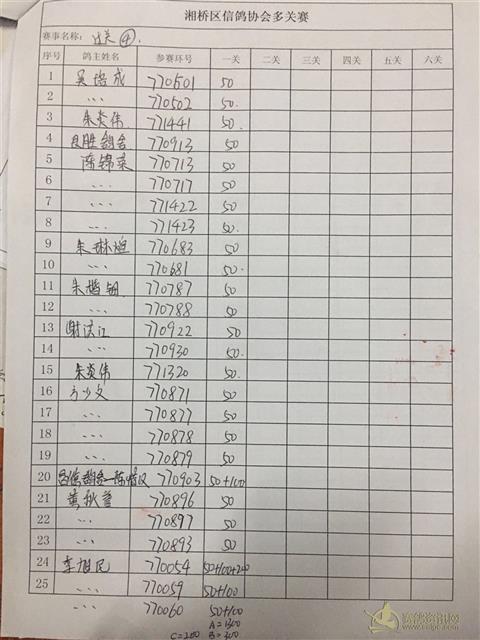 湘桥区信鸽协会多关赛
赛事名称: 过关 ④
序号 鸽主姓名 参赛环号 一关 二关 三关 四关 五关 六关
1 吴 成 770501 50
2 ,,, 770502 50.
3 朱炎伟 771441 50.
4 胜鸽舍 770913 50
5 陈锦 770713 50
6 ,,, 770717 50
7 ,,, 771422 50
8 ,,, 771423 50.
9 朱琳 770683 50
10 ,,, 770681 50.
11 朱 770787 50
12 ,,, 770788 50
13 谢汉江 770922 50
14 ,,, 770930 50.
15 朱炎伟 771320 50.
16 方少文 770871 50
17 ,,, 770877 50
18 ,,, 770878 50
19 ,,, 770879 50
20 信鸽舍 陈 770903 50+100
21 黄 770896 50
22 ,,, 770897 50
23 ,,, 770893 50
24 李旭民 770054 50+100+200
25 ,,, 770059 50+100
,,, 770060 50+100
A=1300
C=200 B=300